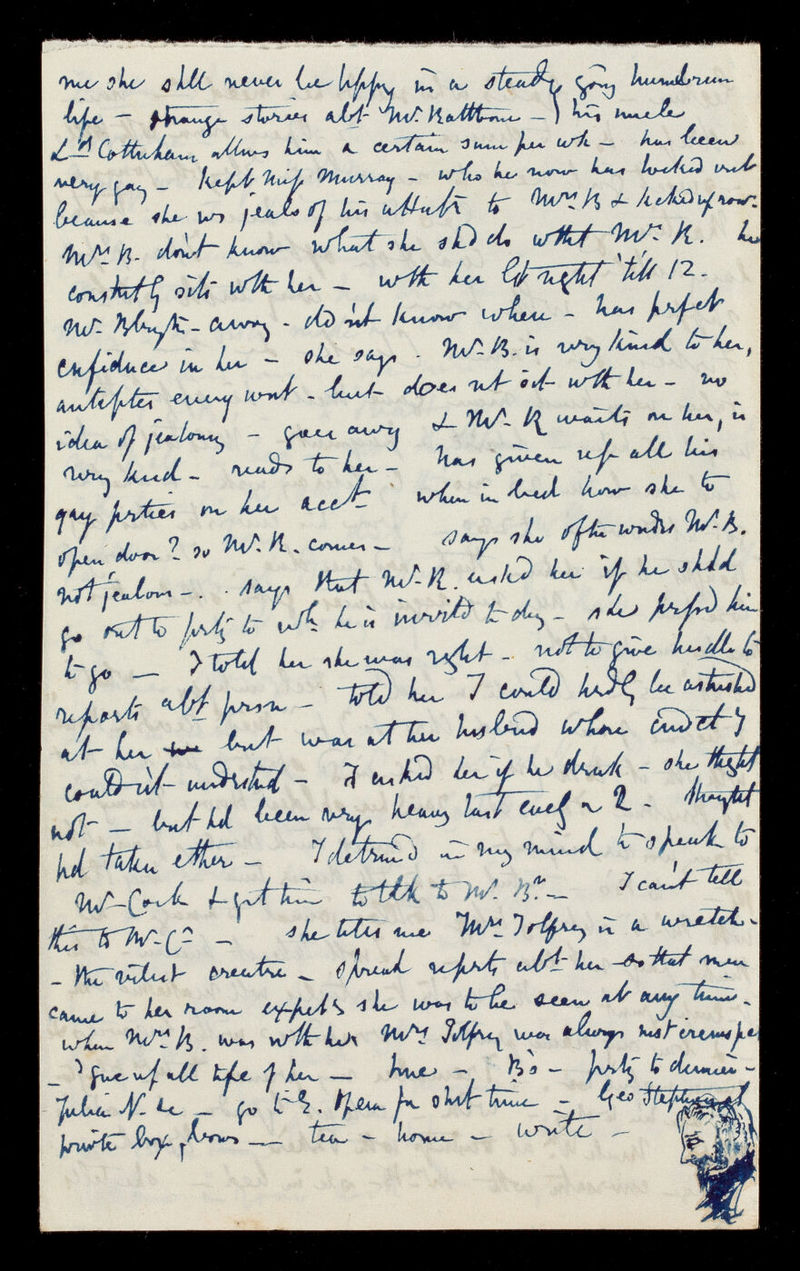 me she shll never be hppy in a steady going humdrum
life - strange stories abt Mr. Rattbone - his uncle
Ld Cottenham allws him a certain sum per wk - has been
very gay - kept Miss Murray - who he now has locked out
because she ws jeals of his attents to Mrs B &
Mrs B. don't know what she shd do wtht Mr. R. he
constntly sits wth her - wth her lst night 'till 12.
Mr. - away - did'nt know where - has prfct
cnfidnce in her - she says. Mr. B. is very kind to her,
anticptes every want - but does nt sit wth her - no
idea of jealousy - goes awy & Mr. R waits on her, is
very kind - reads to her - has given up all his
gay prties on her acct. when in bed how she to
open door? so Mr. R. comes - says she oftn wndrs Mr. B.
not jealous - . says that Mr. R. asked her if he shld
go out to prty to wh he is invitd to day - she prfrd him
to go - I told her she was right - not to give hndle to
reports abt prsn - told her I could hrdly be astnshd
at her but was at her husbnd whose cndct I
could'nt undrstnd - I asked her if he drank - she thght
not - but hd been very heavy last eveg or 2 - thought
hd taken ether - I detrmnd in my mind to speak to
Mr. Cock & get him to tlk to Mr. B. - I can't tell
this to Mr. C - she tells me Mrs Tolfrey is a wretch -
- the vilest creatre - spread reprts abt her so that men
came to her room expctg she was to be seen at any time -
when Mrs B. was wth her Mrs Tolfrey was always mst circmspct
- I give up all hpe of her - home - B's - prty to dinner -
Julia N. &c - go to E. Opera for shrt time - Geo Stephens at
private box, - tea - home - write -